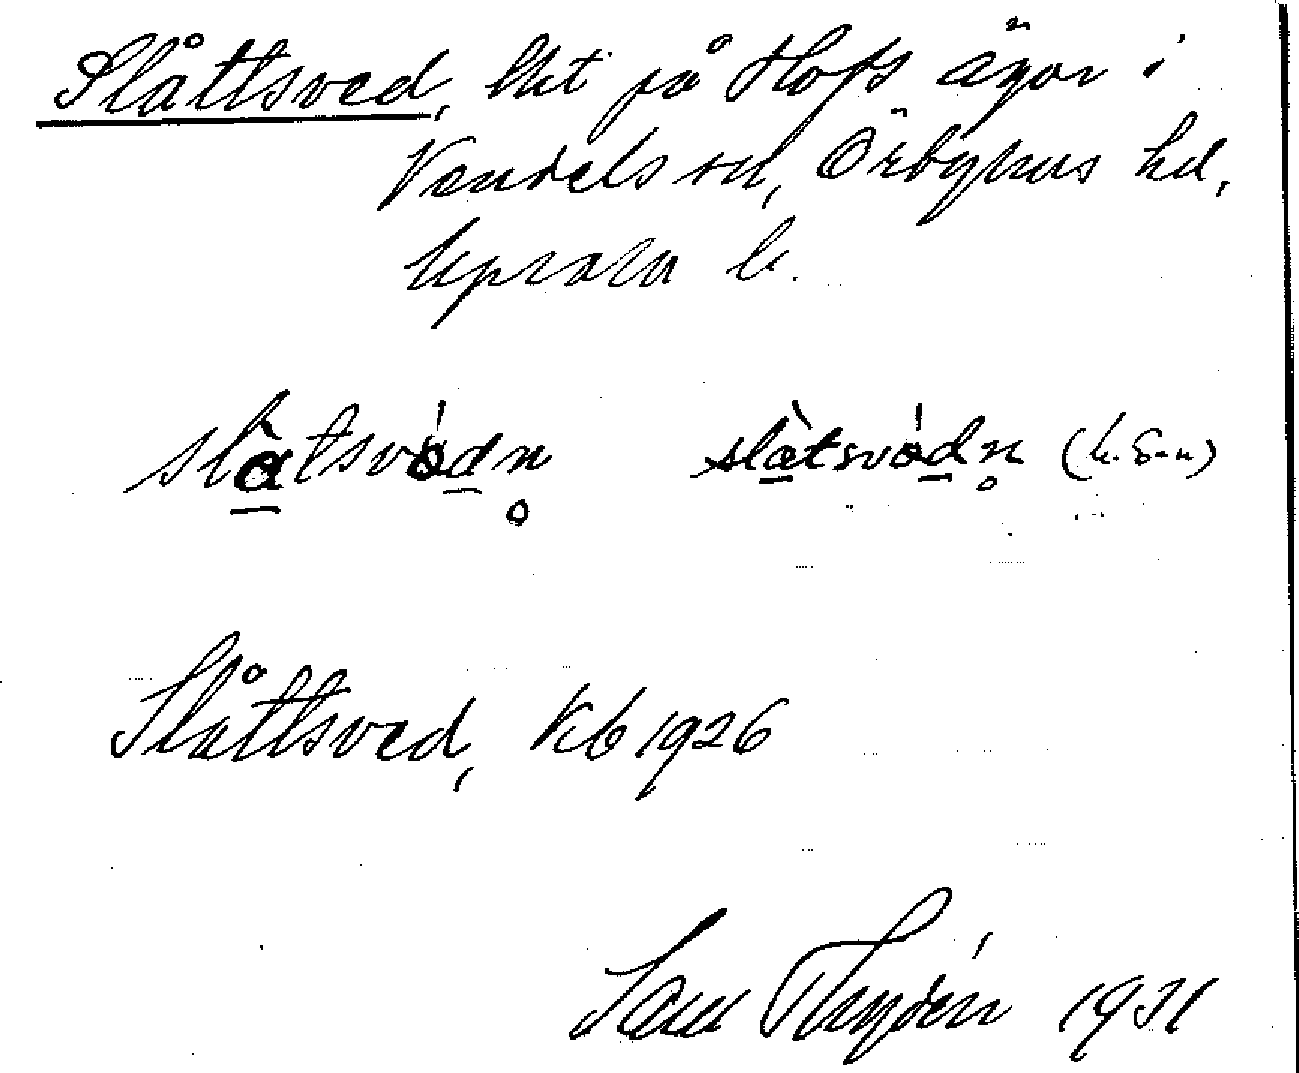 Slåttsved, lht på Hofs ägor i
Vendels sn, Örbyhus hd,
Uppsala l.
slàtsvódn̥ slàtsvódn̥
Slåttsved, Kb 1926
Thydén 1931